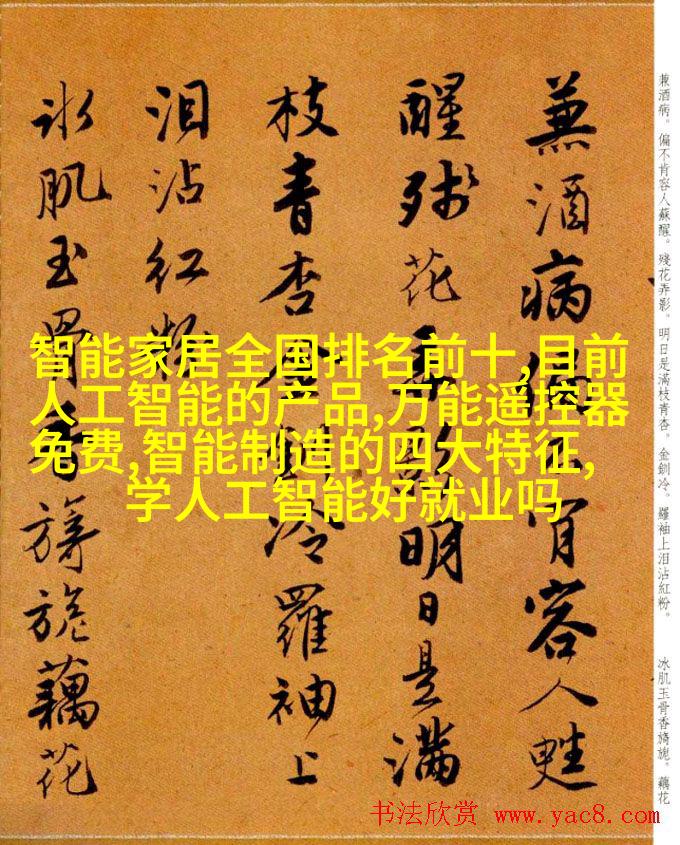 兼酒病偏不肯容人甦
醒殘花弄影明日是滿
枝青杏金釧冷羅袖上
泪沾紅粉
冰肌玉骨香旖旎藕花
智能家居全国排名前十,目前
人工智能的产品,万能遥控器
免费,智能制造的四大特征,
学人工智能好就业吗
兼酒病。偏不肯容人蘇醒。殘花弄影。明日是滿枝青杏。金釧冷。羅袖上泪沾紅粉。 冰肌玉骨香旖旎。藕花
书法欣赏 www.yac8.com